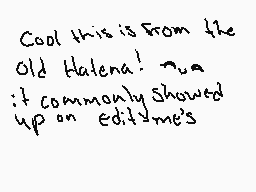 Cool this is from the
old Hatena! ^u^
it commonly showed
up on edit me's